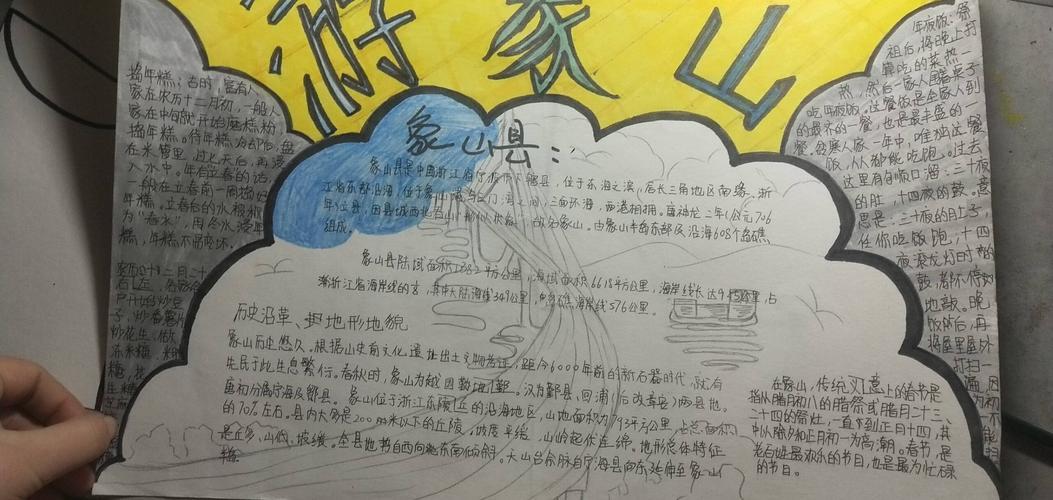 游象山
捣年糕:古时,富有人
家在农历十二月初,一般人
家在中旬就开始磨糕粉
捣年糕。待年糕
在米管里,过七天后,再浸
入水中。年有立春的话
一般在立春前一周捣好
糕。立春后的水
为“春水”,用冬水浸年
糕,年糕不易变坏。
象山县:
象山县是中国浙江省宁波市下辖县,位于东海之滨,居长三角地区南缘、浙
江省东部沿海,位于象山港与三门湾之间,三面环海,两港相拥。唐神龙二年(公元706
年)立县,因县城西北有山形似伏象,故名象山。由象山半岛东部及沿海608个岛礁
组成。
象山县陆域面积1382平方公里,海域面积6618平方公里,海岸线长达925公里,占
浙江省海岸线的,其中大陆海岸线349公里,岛礁海岸线576公里。
历史沿革、地形地貌
象山历史悠久。根据山史前文化遗址出土文物考证,距今6000年前的新石器时代,就有
先民于此生息繁行。春秋时,象山为越国鄞地。汉为鄞县、回浦(后改章安)两县地。
唐初分属宁海及鄮县。象山位于浙江东陵丘的沿海地区,山地面积为793平方公里,占总面积
的70%左右。县内大多是200米以下的丘陵,坡度平缓,山岭起伏连绵。地形总体特征
是丘多,山低,坡缓。全县地势自西向东南倾斜。天山台余脉自宁海县向东延伸至象山
年夜饭:祭
祖后,将晚上打
算吃的菜热一
热,然后一家人围着桌子
吃年夜饭。这餐饭是全家人到
的最齐的一餐,也是最丰盛的一
餐。穷寨人家一年中,唯独这餐
饭,人人都能吃饱。过去
这里有句顺口溜:三十夜
的肚,十四夜的鼓。意
思是:三十夜的肚子,
任你吃饭饱,十四
夜滚龙灯时的
鼓,都不停的
地敲。晚
饭所后,再
将屋里屋外
打扫一
在象山,传统意上的春节是
指从腊月初八的腊祭或腊月二十三、
二十四的祭灶,一直下到正月十四,其
中以除夕和正月初一为高潮。春节,是
老百姓最欢乐的节日,也是最为忙碌
的节日。